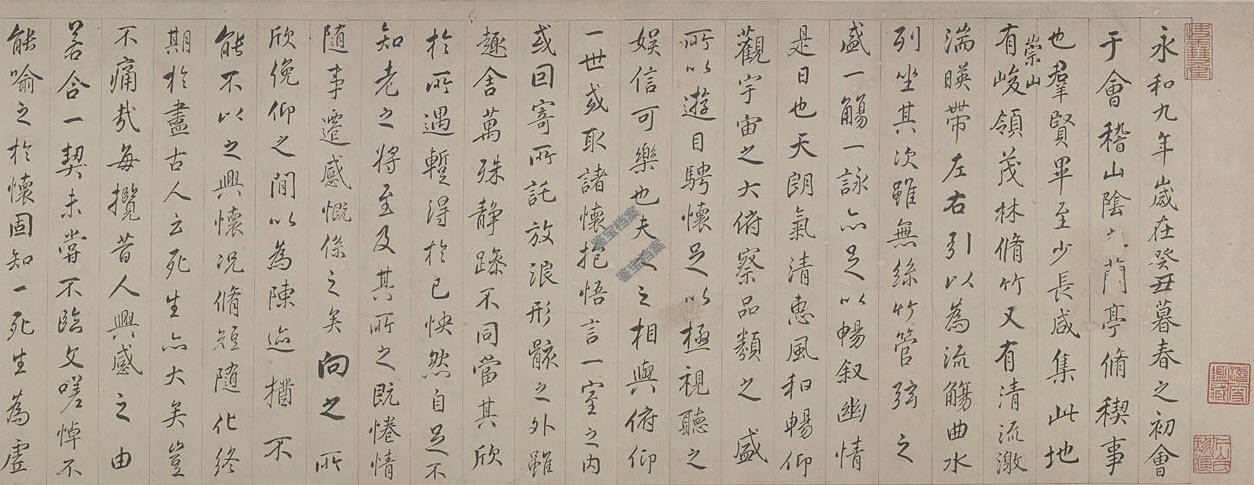 永和九年歲在癸丑暮春之初會
于會稽山陰之蘭亭脩稧事
也羣賢畢至少長咸集此地
有崇山峻領茂林脩竹又有清流激
湍暎帶左右引以為流觴曲水
列坐其次雖無絲竹管弦之
盛一觴一詠亦足以暢叙幽情
是日也天朗氣清惠風和暢仰
觀宇宙之大俯察品類之盛
所以遊目騁懷足以極視聽之
娛信可樂也夫人之相與俯仰
一世或取諸懷抱悟言一室之内
或因寄所託放浪形骸之外雖
趣舍萬殊静躁不同當其欣
於所遇暫得於己怏然自足不
知老之將至及其所之既惓情
随事遷感慨係之矣向之所
欣俛仰之閒以為陳迹猶不
能不以之興懷况脩短随化終
期於盡古人云死生亦大矣豈
不痛哉每攬昔人興感之由
若合一契未甞不臨文嗟悼不
能喻之於懷固知一死生為虚
鉴宝档案
鉴宝档案